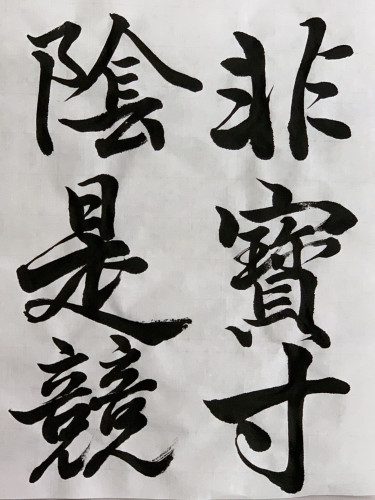 非寶寸
陰是競